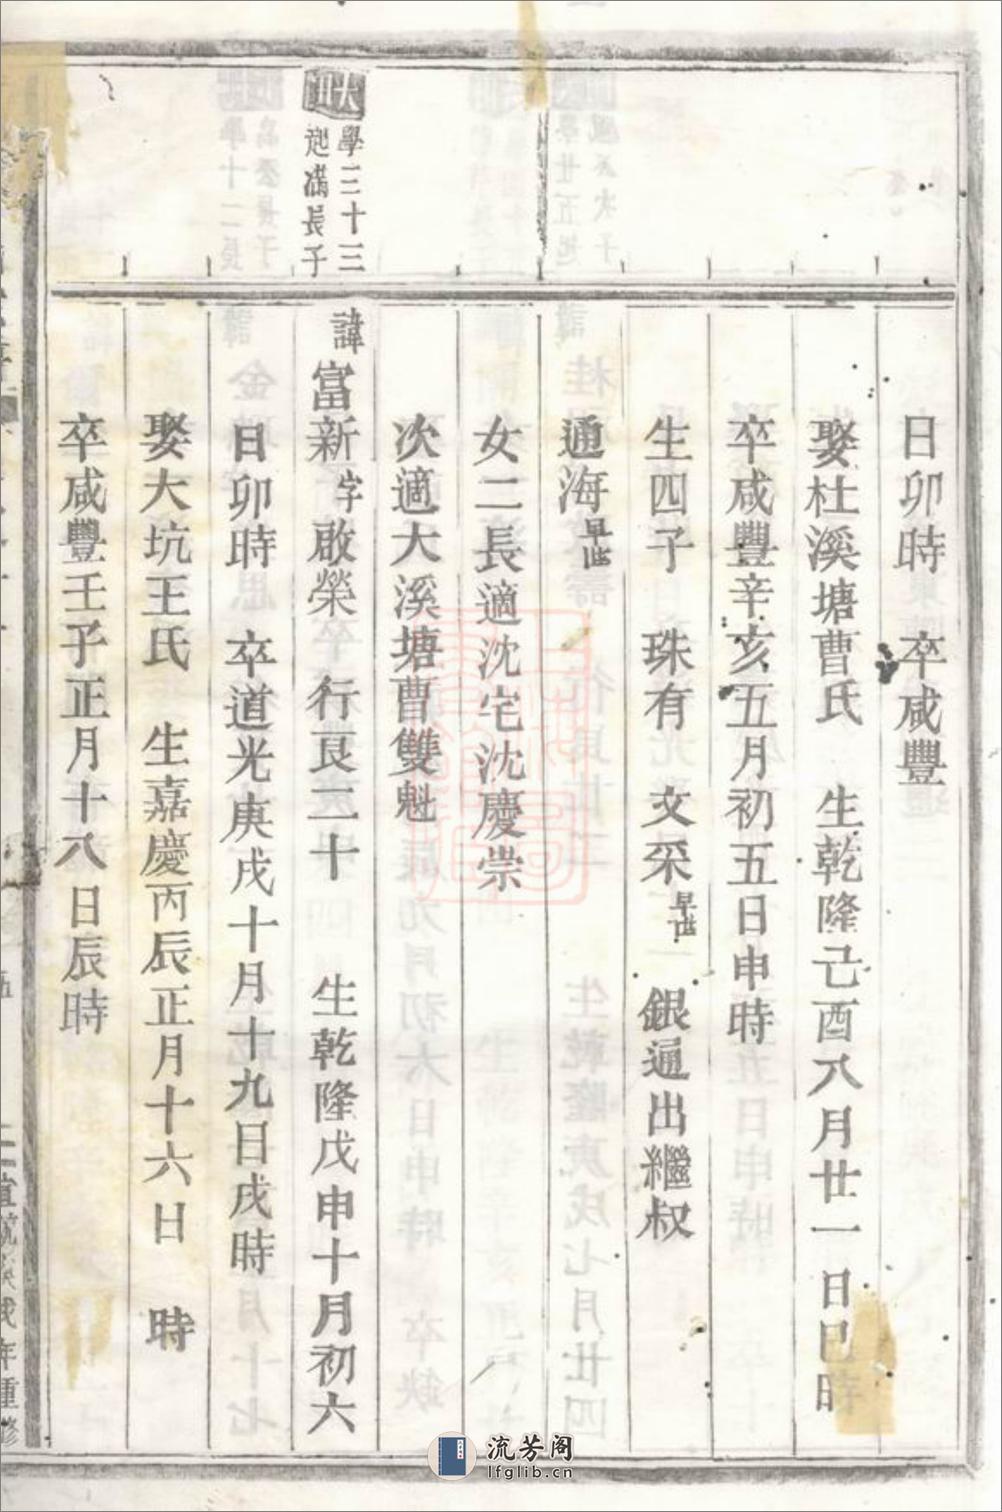 日卯時　卒咸豐
娶杜溪塘曹氏　生乾隆己酉八月廿一日巳時
卒咸豐辛亥五月初五日申時
生四子　珠有　文采早世　銀通出繼叔
通海早世
女二長適沈宅沈慶崇
次適大溪塘曹雙魁
學三十三
起滿長子
諱富新字啟榮　行艮三十　生乾隆戊申十月初六
日卯時　卒道光庚戌十月十九日戌時
娶大坑王氏　生嘉慶丙辰正月十六日　時
卒咸豐壬子正月十八日辰時
年重修
流芳阁
lfglib.cn